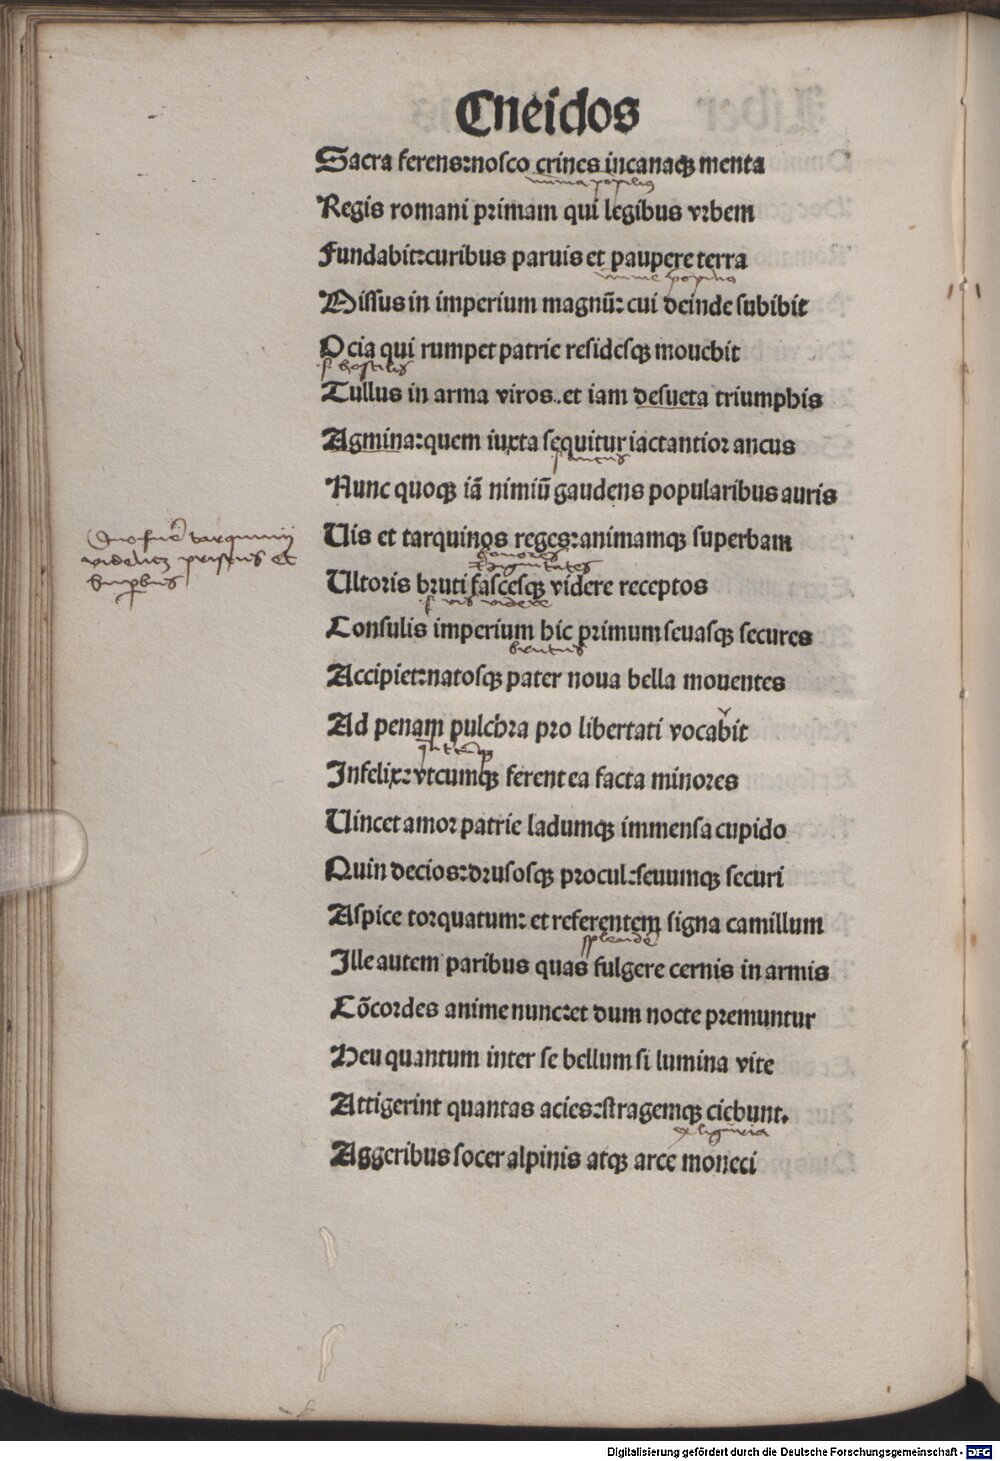 Eneidos
Sacra ferens:nosco crines incanaqꝫ menta
numa popilius
Regis romani primam qui legibus vrbem
Fundabit:curibus paruis et paupere terra
nume popilius
Missus in imperium magnū: cui deinde subibit
Ocia qui rumpet patrie residesqꝫ mouebit
s hostilius
Tullus in arma viros. et iam desueta triumphis
Agmina:quem iuxta sequitur iactantior ancus
s ancus
Nunc quoqꝫ iā nimiū gaudens popularibus auris
Uis et tarquinos reges:animamqꝫ superbam
Duo fuerūt tarquinij
videlicꝫ priscus et
superbus
honores
dignitates
Ultoris bruti fascesqꝫ videre receptos
s vis videre
Consulis imperium hic primum seuasqꝫ secures
brutus
Accipiet:natosqꝫ pater noua bella mouentes
Ad penam pulchra pro libertati vocabit
Infelix: vtcumqꝫ ferent ea facta minores
Uincet amor patrie ladumqꝫ immensa cupido
Quin decios:drusosqꝫ procul:seuumqꝫ securi
Aspice torquatum: et referentem signa camillum
splende
Ille autem paribus quas fulgere cernis in armis
Cōcordes anime nunc:et dum nocte premuntur
Heu quantum inter se bellum si lumina vite
Attigerint quantas acies:stragemqꝫ ciebunt.
liguria
Aggeribus socer alpinis atqꝫ arce moneci
Digitalisierung gefördert durch die Deutsche Forschungsgemeinschaft - DFG